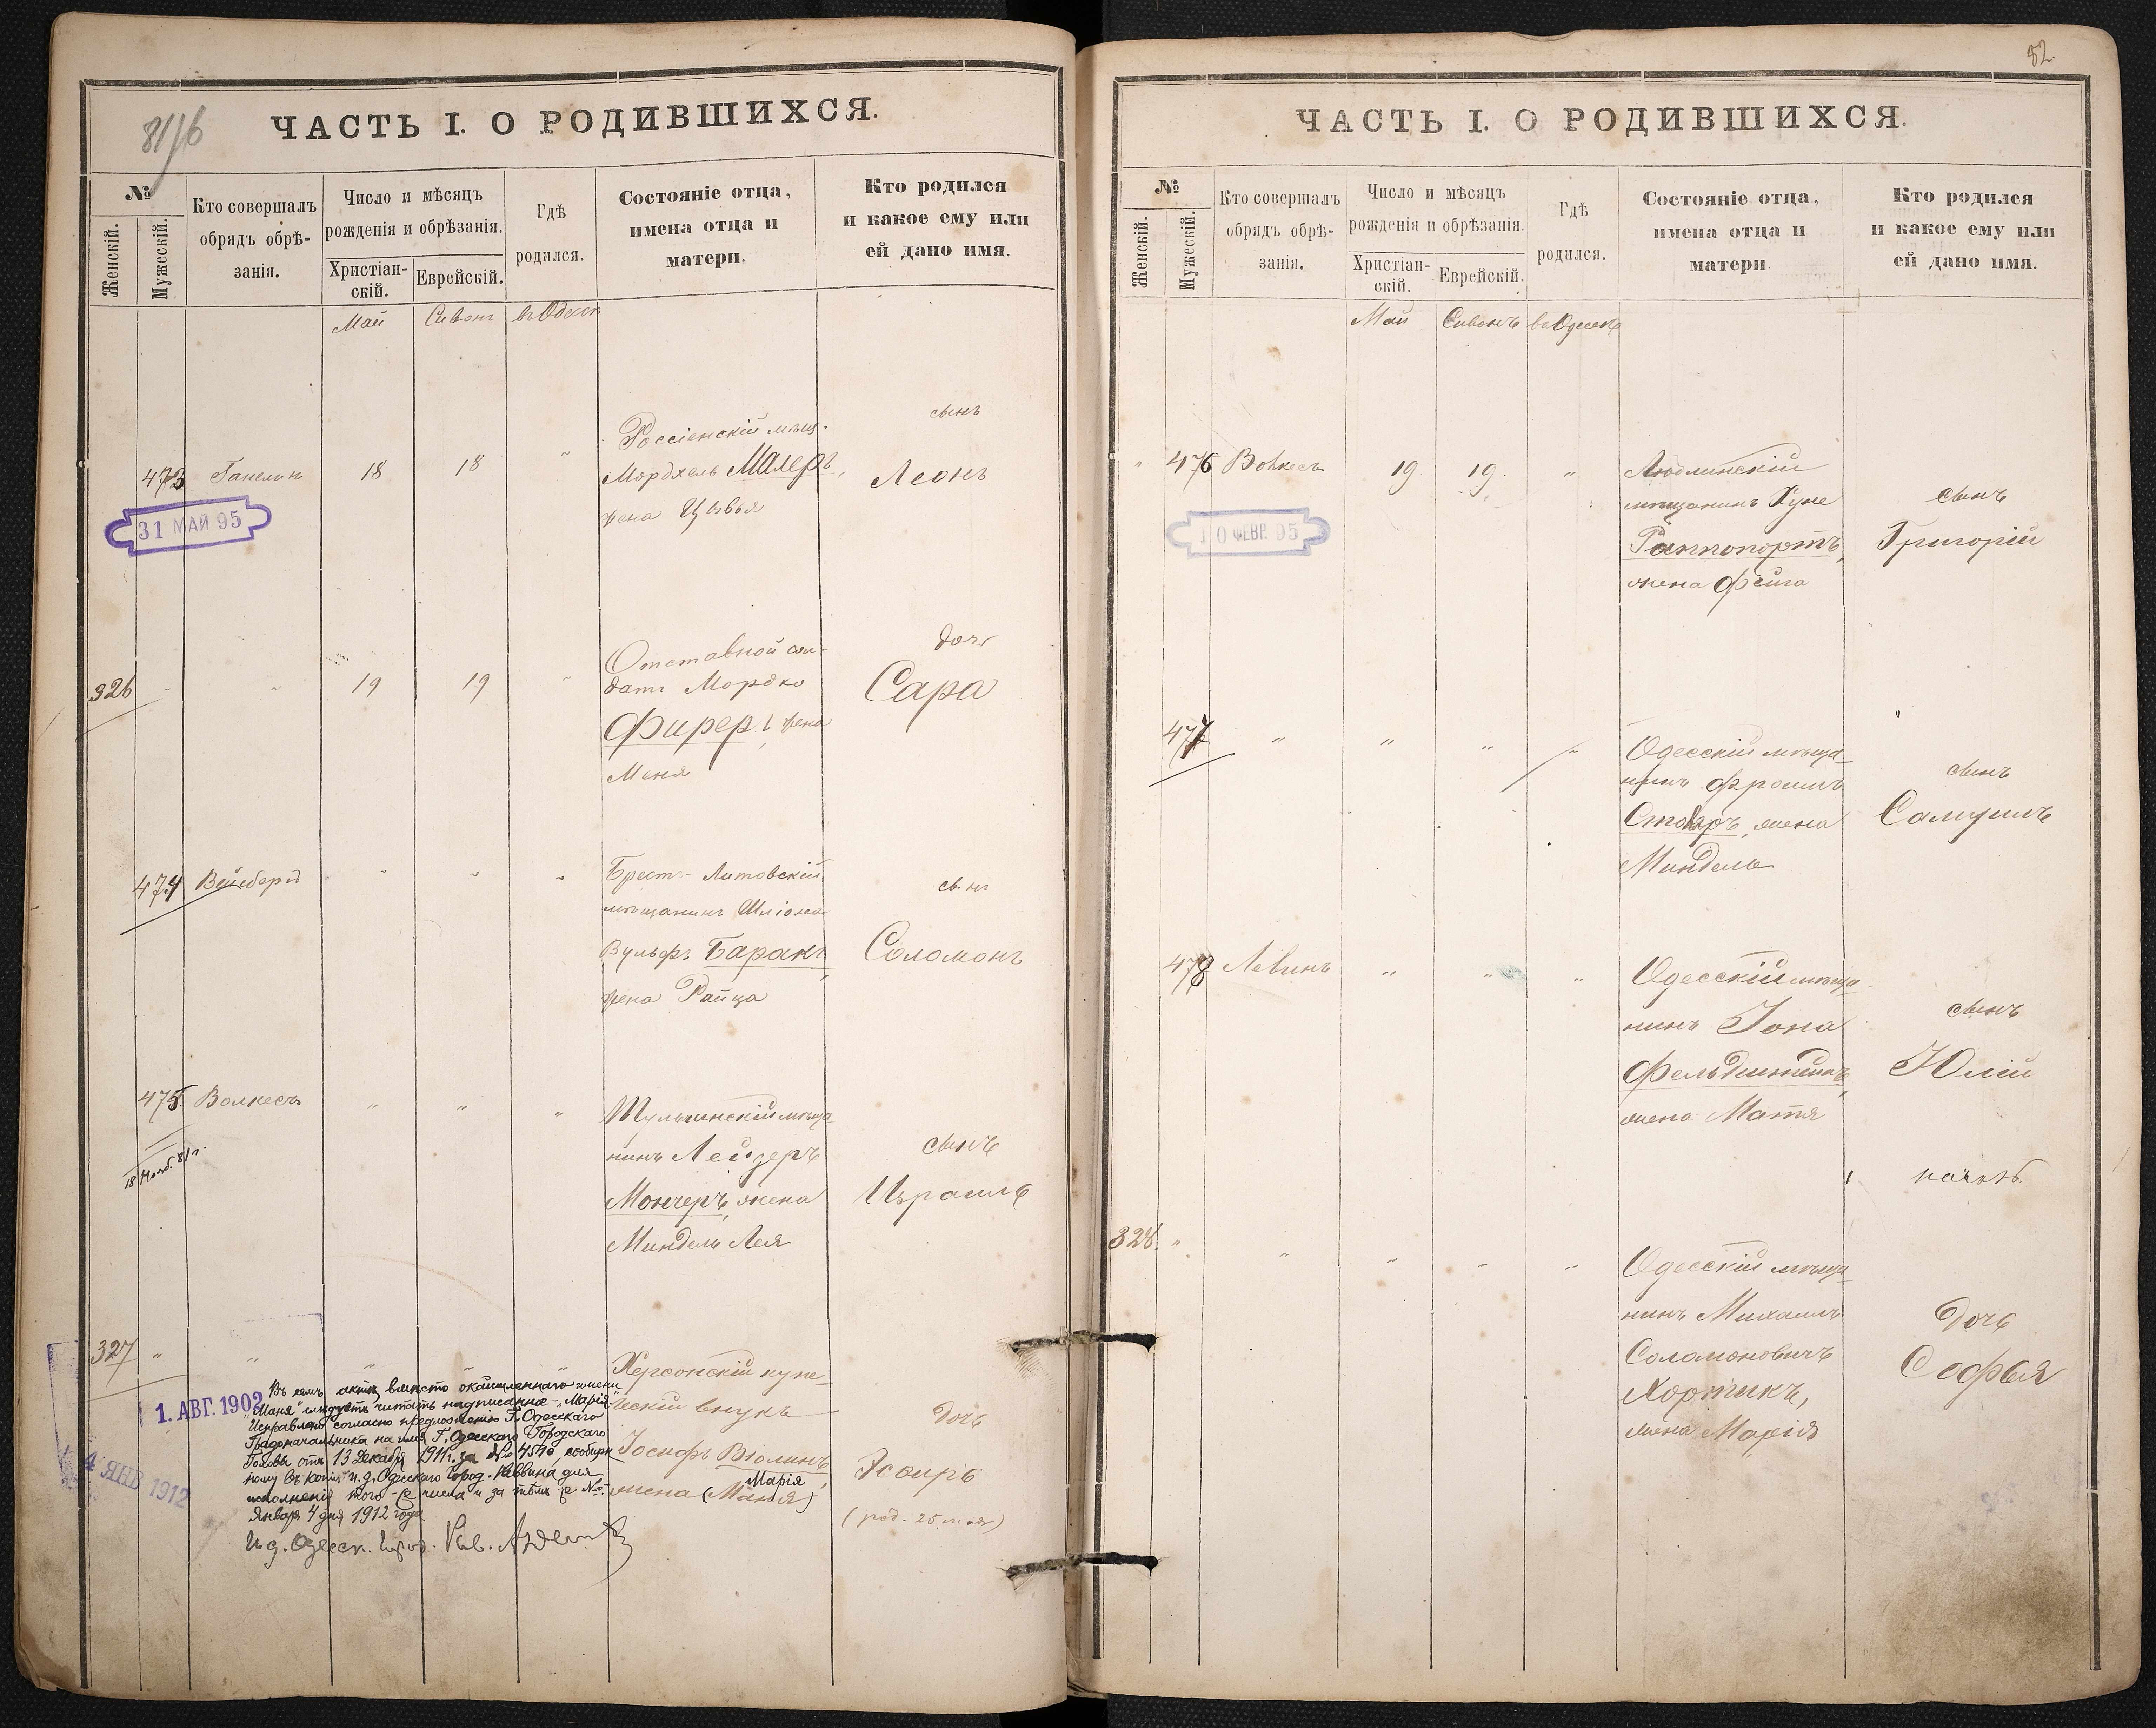 81/76
ЧАСТЬ I. О РОДИВШИХСЯ.
№
Женскій.
Мужескій.
Кто совершалъ
обрядъ обрѣ-
занія.
Число и мѣсяцъ
рожденія и обрѣзанія.
Христіан-
скій.
Еврейскій.
Гдѣ
родился.
Состояніе отца,
имена отца и
матери.
Кто родился
и какое ему или
ей дано имя.
Май Сивонъ въ Одессѣ
473 Ганелинъ 18 18 "
Россіенскій мѣщ.
Мордхель Малеръ,
жена Цывья
сынъ
Леонъ
31 МАЙ 95
326 " " 19 19 "
Отставной сол-
датъ Мордко
Фиреръ, жена
Меня
дочь
Сара
474 Вейнбергъ " " "
Брест-Литовскій
мѣщанинъ Шліома
Вульфъ Баракъ,
жена Райца
сынъ
Соломонъ
475 Волкесъ " " "
18 Нояб. 81 г.
Тульчинскій мѣща
нинъ Лейзеръ
Мончеръ, жена
Миндель Лея
сынъ
Израиль
327 " " " " "
Херсонскій купе-
ческій внукъ
Іосифъ Віолинъ,
Марія
жена (Маня)
дочь
Эсѳиръ
(род. 25 мая)
1. АВГ. 1902
4 ЯНВ 1912
Въ семъ актѣ вмѣсто окаймленнаго имени
"Маня" слѣдуетъ читать надписанное "Марія"
Исправлено согласно предложенію Г. Одесскаго
Градоначальника на имя Г. Одесскаго Городского
Головы отъ 13 Декабря 1911 г. за № 4540, сообщен
ному въ копіи и. д. Одесскаго Город. Раввина для
исполненія того-же числа и за тѣмъ же №.
Января 4 дня 1912 года
И. д. Одесск. Город. Рав.
82
ЧАСТЬ I. О РОДИВШИХСЯ.
№
Женскій.
Мужескій.
Кто совершалъ
обрядъ обрѣ-
занія.
Число и мѣсяцъ
рожденія и обрѣзанія.
Христіан-
скій.
Еврейскій.
Гдѣ
родился.
Состояніе отца,
имена отца и
матери.
Кто родился
и какое ему или
ей дано имя.
Май Сивонъ въ Одессѣ
" 476 Волкесъ 19 19. "
Люблинскій
мѣщанинъ Хуне
Раппопортъ,
жена Фейга
сынъ
Григорій
10 ФЕВР. 95
477 " " " "
Одесскій мѣща-
нинъ Фроимъ
Столяръ, жена
Миндель
сынъ
Самуилъ
478 Левинъ " " "
Одесскій мѣща-
нинъ Іона
жена Матя
сынъ
Юлій
328. " " " " "
Одесскій мѣща-
нинъ Михаилъ
Соломоновичъ
Хортикъ,
жена Марія
дочь
Софья